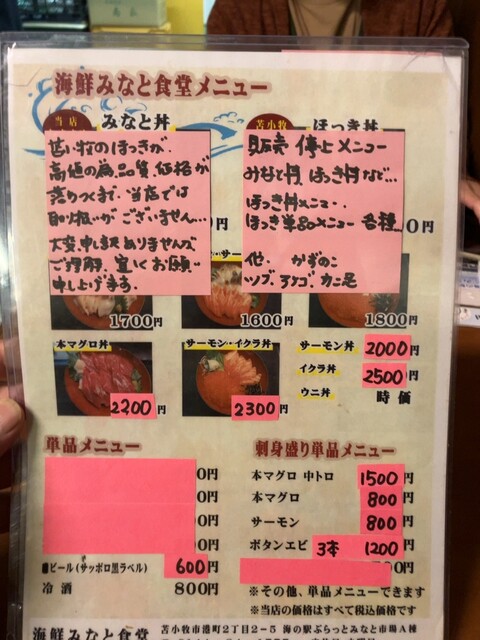 海鮮みなと食堂メニュー
当店
みなと丼
苫小牧
ほっき丼
苫小牧のほっきが、
高値の為、品質、価格が
落ちつくまで、当店では
取り扱いがございません…
大変、申し訳ありませんが、
ご理解、宜しくお願い
申し上げます。
販売停止メニュー
みなと丼、ほっき丼など…
ほっき丼メニュー、
ほっき単品メニュー各種
他、かずのこ
ツブ、アンゴ、カニ足
0円
1700円
1600円
1800円
本マグロ丼
2200円
サーモン・イクラ丼
2300円
サーモン丼 2000円
イクラ丼 2500円
ウニ丼 時価
単品メニュー
0円
0円
0円
0円
ビール(サッポロ黒ラベル) 600円
冷酒 800円
刺身盛り単品メニュー
本マグロ 中トロ 1500円
本マグロ 800円
サーモン 800円
ボタンエビ 3本 1200円
円
※その他、単品メニューできます
※当店の価格はすべて税込価格です
海鮮みなと食堂
苫小牧市港町2丁目2-5 海の駅ぷらっとみなと市場A棟